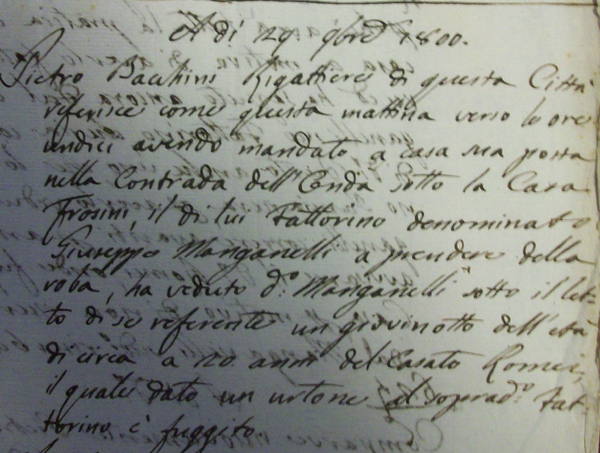 A dì 29. 9bre 1800.
Pietro Bacchini Rigattiere di questa Città
referisce come questa mattina verso le ore
undici avendo mandato a casa sua posta
nella Contrada dell'Onda sotto la Casa
Frosini, il di lui Fattorino denominato
Giuseppe Manganelli a prendere della
roba, ha veduto d.o Manganelli sotto il let-
to di se referente un giovinotto dell'età
di circa a 20 anni del Casato Romei,
il quale dato un urtone al soprad.o Fat-
torino è fuggito.